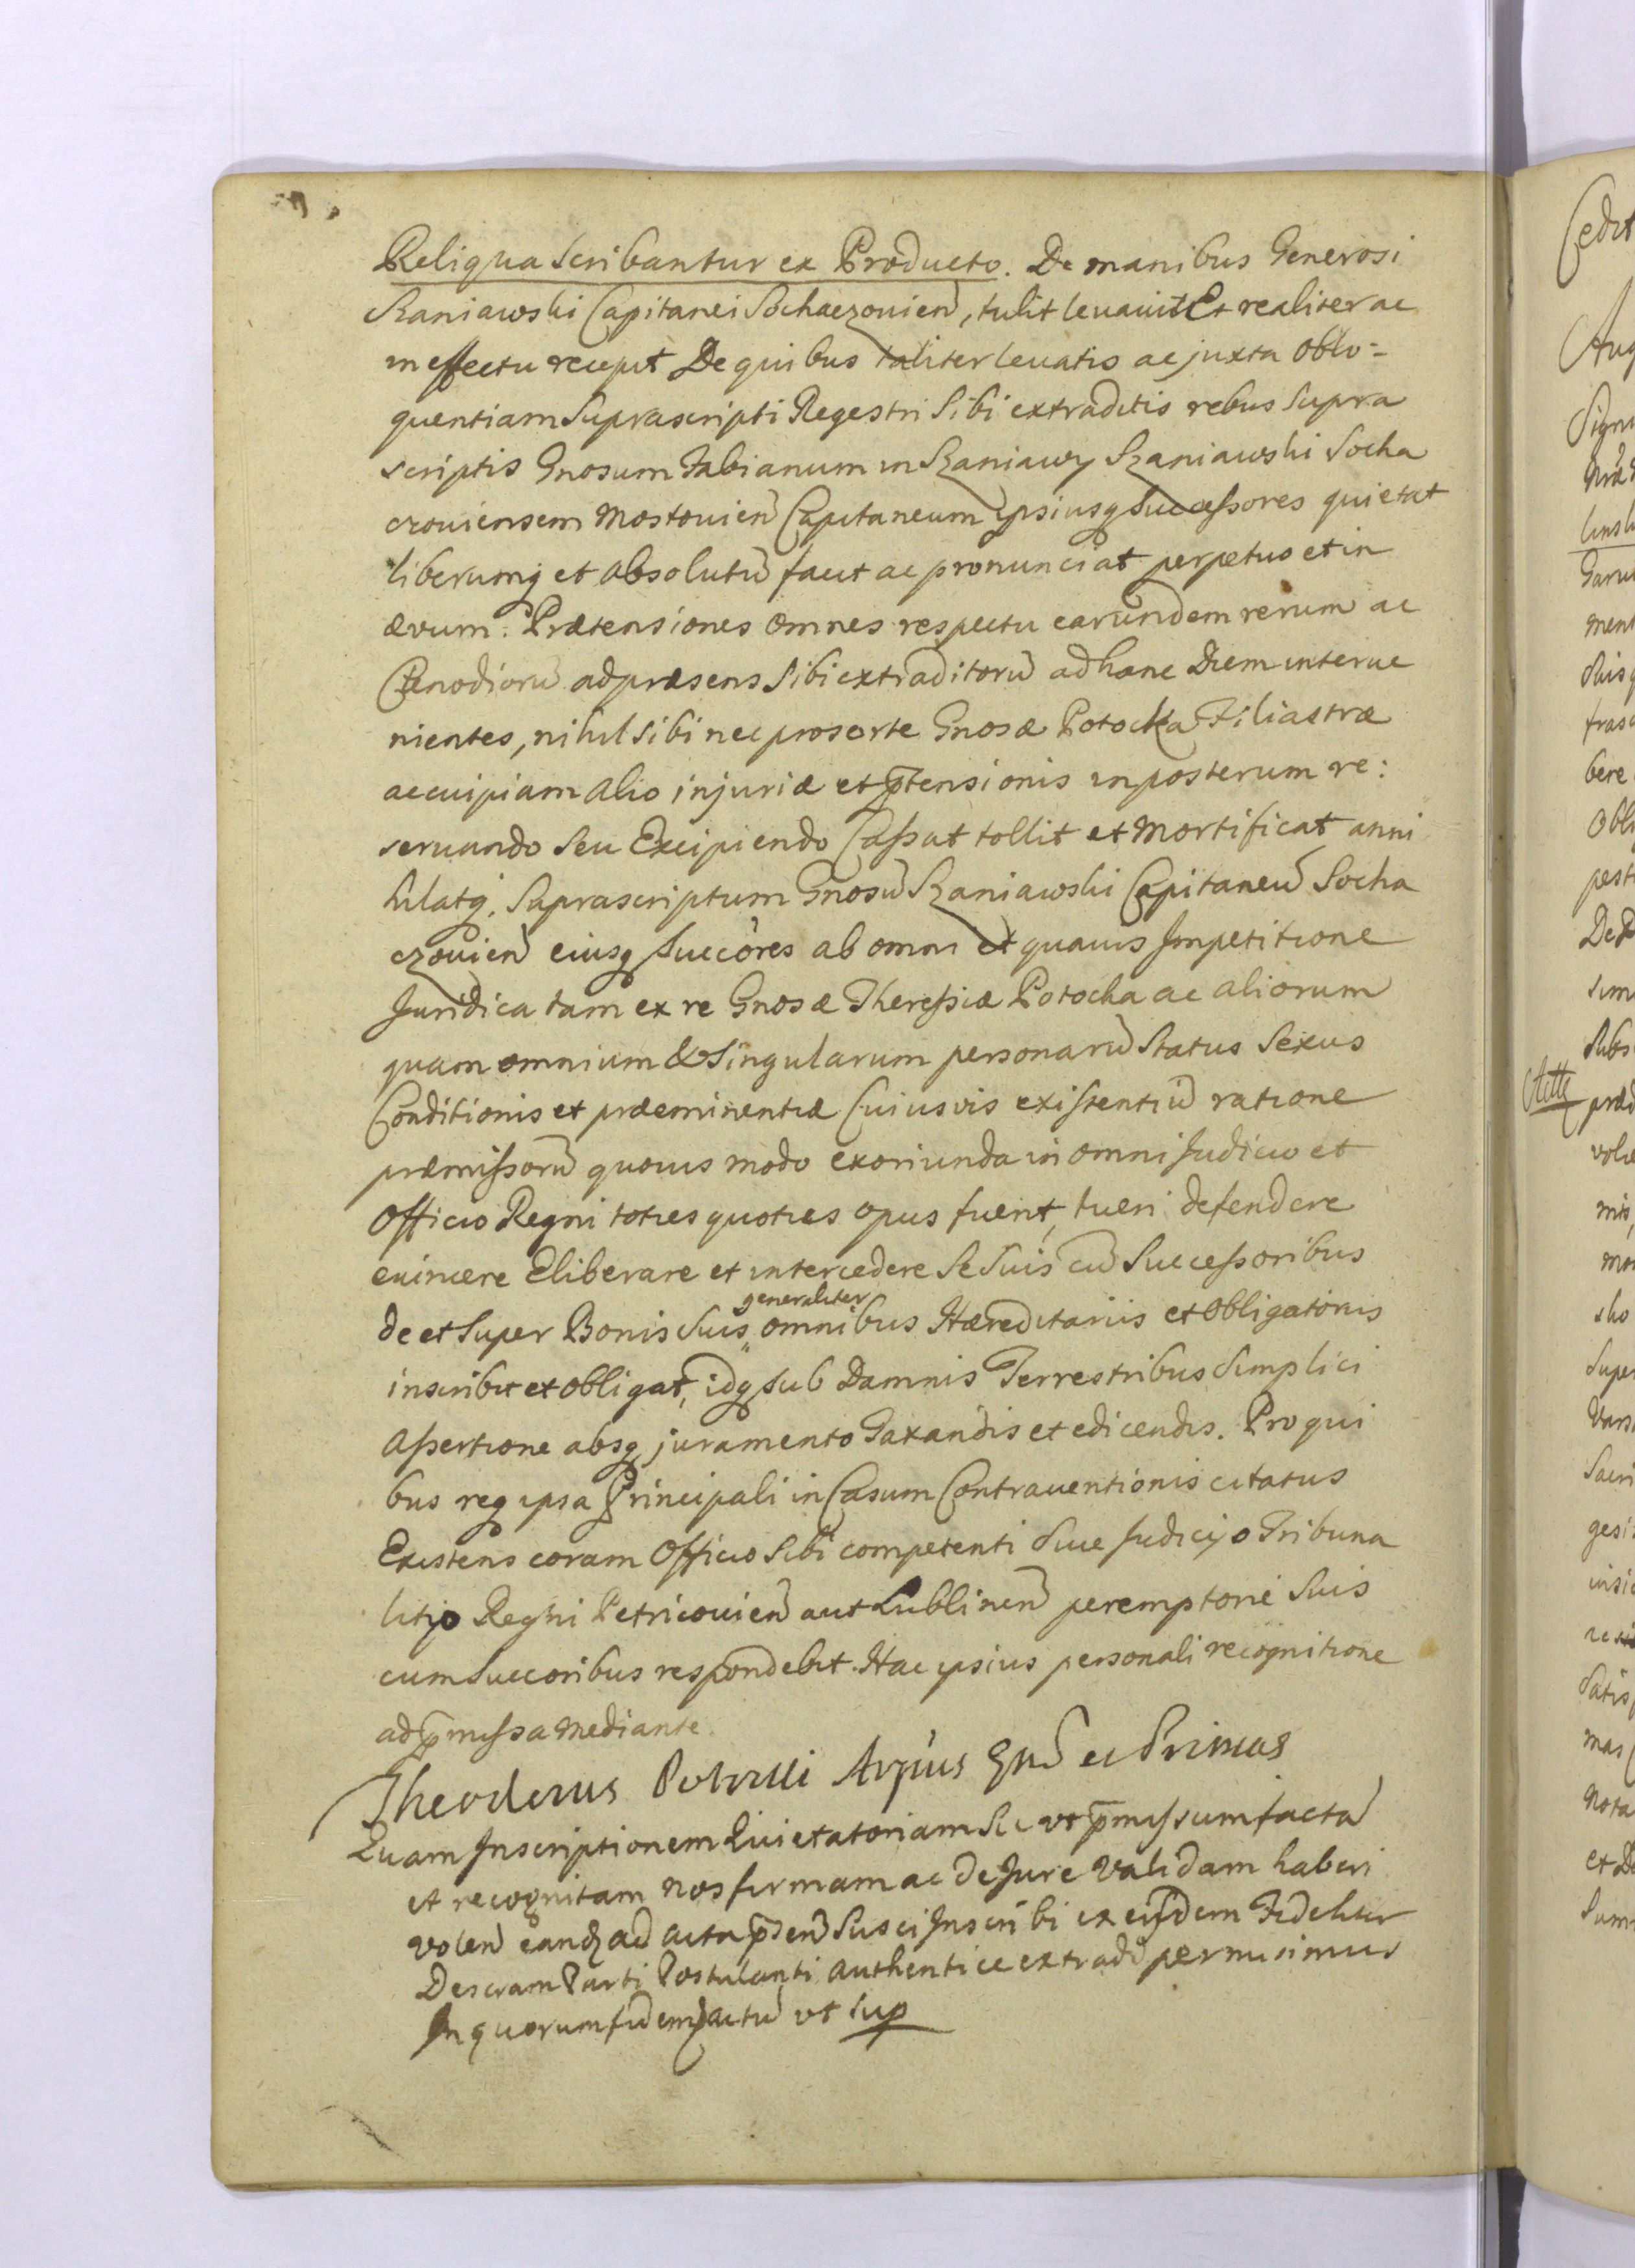 Reliqua scribantur ex Producto. De manibus Generosi
Szaniawski Capitanei Sochaczovien, tulit levavit Et realiter ac
in effectu recepit De quibus taliter levatis ac juxta Oblo-
quentiam Suprascripti Regestri Sibi extraditis rebus supra
scriptis Gnosum Fabianum in Szaniawy Szaniawski Socha
czoviensem Mostovien Capitaneum ipsiusq Successores quietat
liberumq et absolutu facit ac pronunciat perpetuo et in
ævum. Prætensiones omnes respectu earundem rerum ac
Clenodioru ad præsens Sibi extraditoru ad hanc Diem interve
nientes, nihil Sibi nec pro sorte Gnosæ Potocka Filiastræ
ac cuipiam alio injuriæ et ptensionis in posterum re:
servando Seu Excipiendo Cassat tollit et Mortificat anni
hilatq. Suprascriptum Gnosu Szaniawski Capitaneu Socha
czovien eiusq Succores ab omni et quavis Impetitione
Juridica tam ex re Gnosæ Theressiæ Potocka ac aliorum
quam omnium & Singularum personaru Status Sexus
Conditionis et præeminentiæ Cuiusvis existentiu ratione
præmissoru quovis modo exoriunda in omni Judicio et
Officio Regni toties quoties opus fuerit, tueri defendere
evincere Eliberare et intercedere Se Suis cu Successoribus
generaliter
de et Super Bonis Suis omnibus Hæreditariis et Obligatoriis
inscribit et obligat, idq sub Damnis Terrestribus Simplici
Assertione absq juramento Taxandis et edicendis. Pro qui
bus req ipsa Principali in Casum Contraventionis citatus
Existens coram Officio Sibi competenti Sive Judicijo Tribuna
litijo Regni Petricovien aut Lublinen peremptorie Suis
cum Succoribus respondebit. Hac ipsius personali recognitione
ad pmissa Mediante.
Theodorus Potocki Arpius Gn et Primas
Quam Inscriptionem Quietatoriam Sic ut pmissum facta
et recognitam nos firmam ac de Jure Validam haberi
volen eandq ad acta psen Susci Inscribi ex eisdem Fideliter
Descram Parti Postulanti authentice extradi permisimus
In quorum fidem Actu ut sup